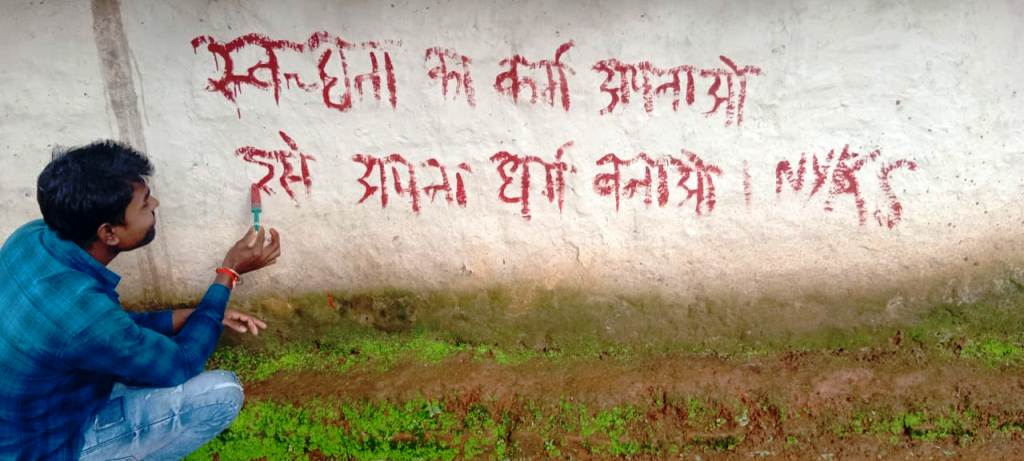 स्वच्छता का कर्म अपनाओ
इसे अपना धर्म बनाओ । NYKS